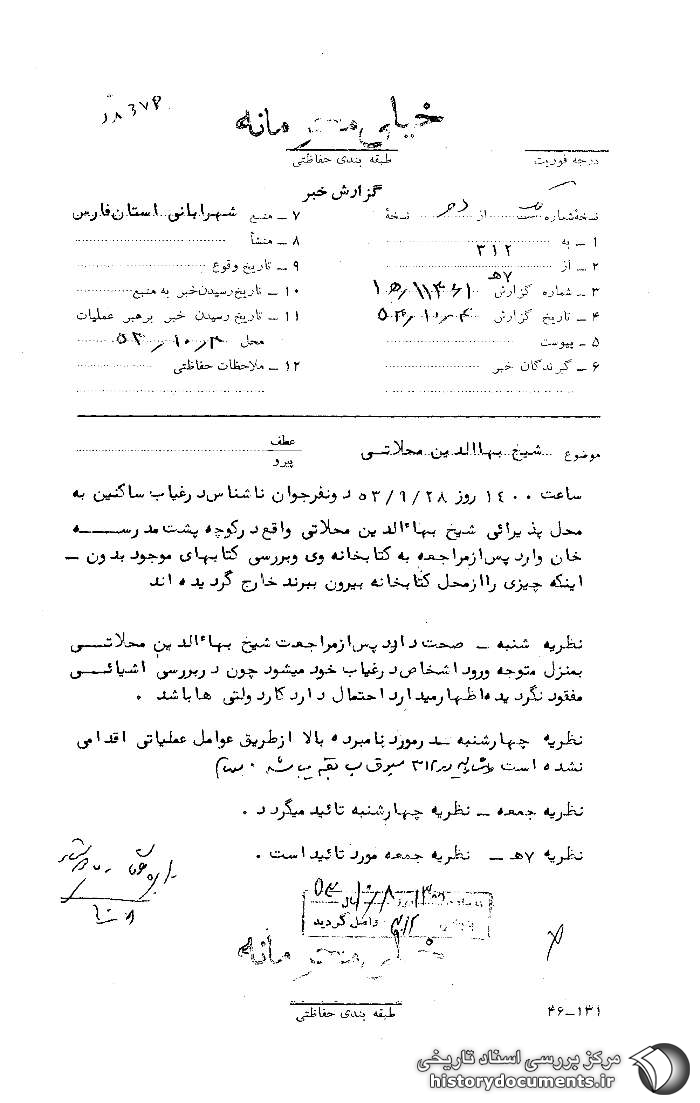 خیلی محرمانه
درجه فوریت
طبقه بندی حفاظتی
گزارش خبر
نسخهٔ شماره یک از دو نسخهٔ
۱ ـ به ۳۱۲
۲ ـ از ۷ه‍
۳ ـ شماره گزارش
۴ ـ تاریخ گزارش
۵ ـ پیوست
۶ ـ گیرندگان خبر
۷ ـ منبع شهربانی استان فارس
۸ ـ منشأ
۹ ـ تاریخ وقوع
۱۰ ـ تاریخ رسیدن خبر به منبع
۱۱ ـ تاریخ رسیدن خبر برهبر عملیات
محل
۱۲ ـ ملاحظات حفاظتی
موضوع شیخ بهاالدین محلاتی
عطف
پیرو
ساعت ۱۴۰۰ روز ۵۳/۹/۲۸ دونفرجوان ناشناس درغیاب ساکنین به
محل پذیرائی شیخ بهاءالدین محلاتی واقع درکوچه پشت مدرسه
خان وارد پس ازمراجعه به کتابخانه وی وبررسی کتابهای موجود بدون ـ
اینکه چیزی را ازمحل کتابخانه بیرون ببرند خارج گردیده اند
نظریه شنبه ـ صحت دارد پس ازمراجعت شیخ بهاءالدین محلاتی
بمنزل متوجه ورود اشخاص درغیاب خود میشود چون دربررسی اشیائی
مفقود نگردیده اظهارمیدارد احتمال دارد کار دولتی ها باشد .
نظریه چهارشنبه ـ درمورد نامبرده بالا ازطریق عوامل عملیاتی اقدامی
نشده است
نظریه جمعه ـ نظریه چهارشنبه تائید میگردد .
نظریه ۷ه‍ ـ نظریه جمعه مورد تائید است .
واصل گردید
طبقه بندی حفاظتی
۴۶-۱۳۱
مرکز بررسی اسناد تاریخی
historydocuments.ir